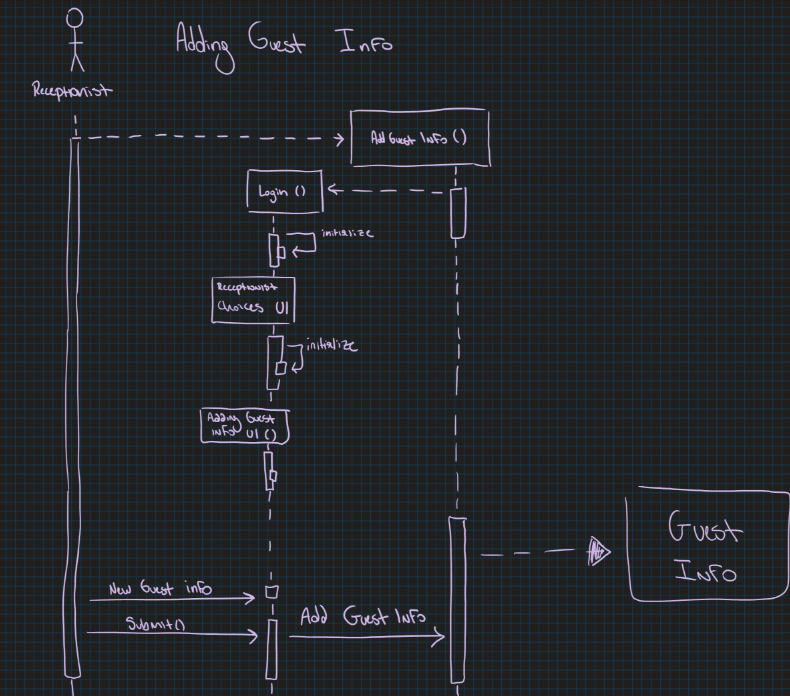 Adding Guest Info
Receptionist
Add Guest Info ()
Login ()
initialize
Receptionist
Choices UI
initialize
Adding Guest
info UI ()
Guest
Info
New Guest info
Add Guest Info
Submit()